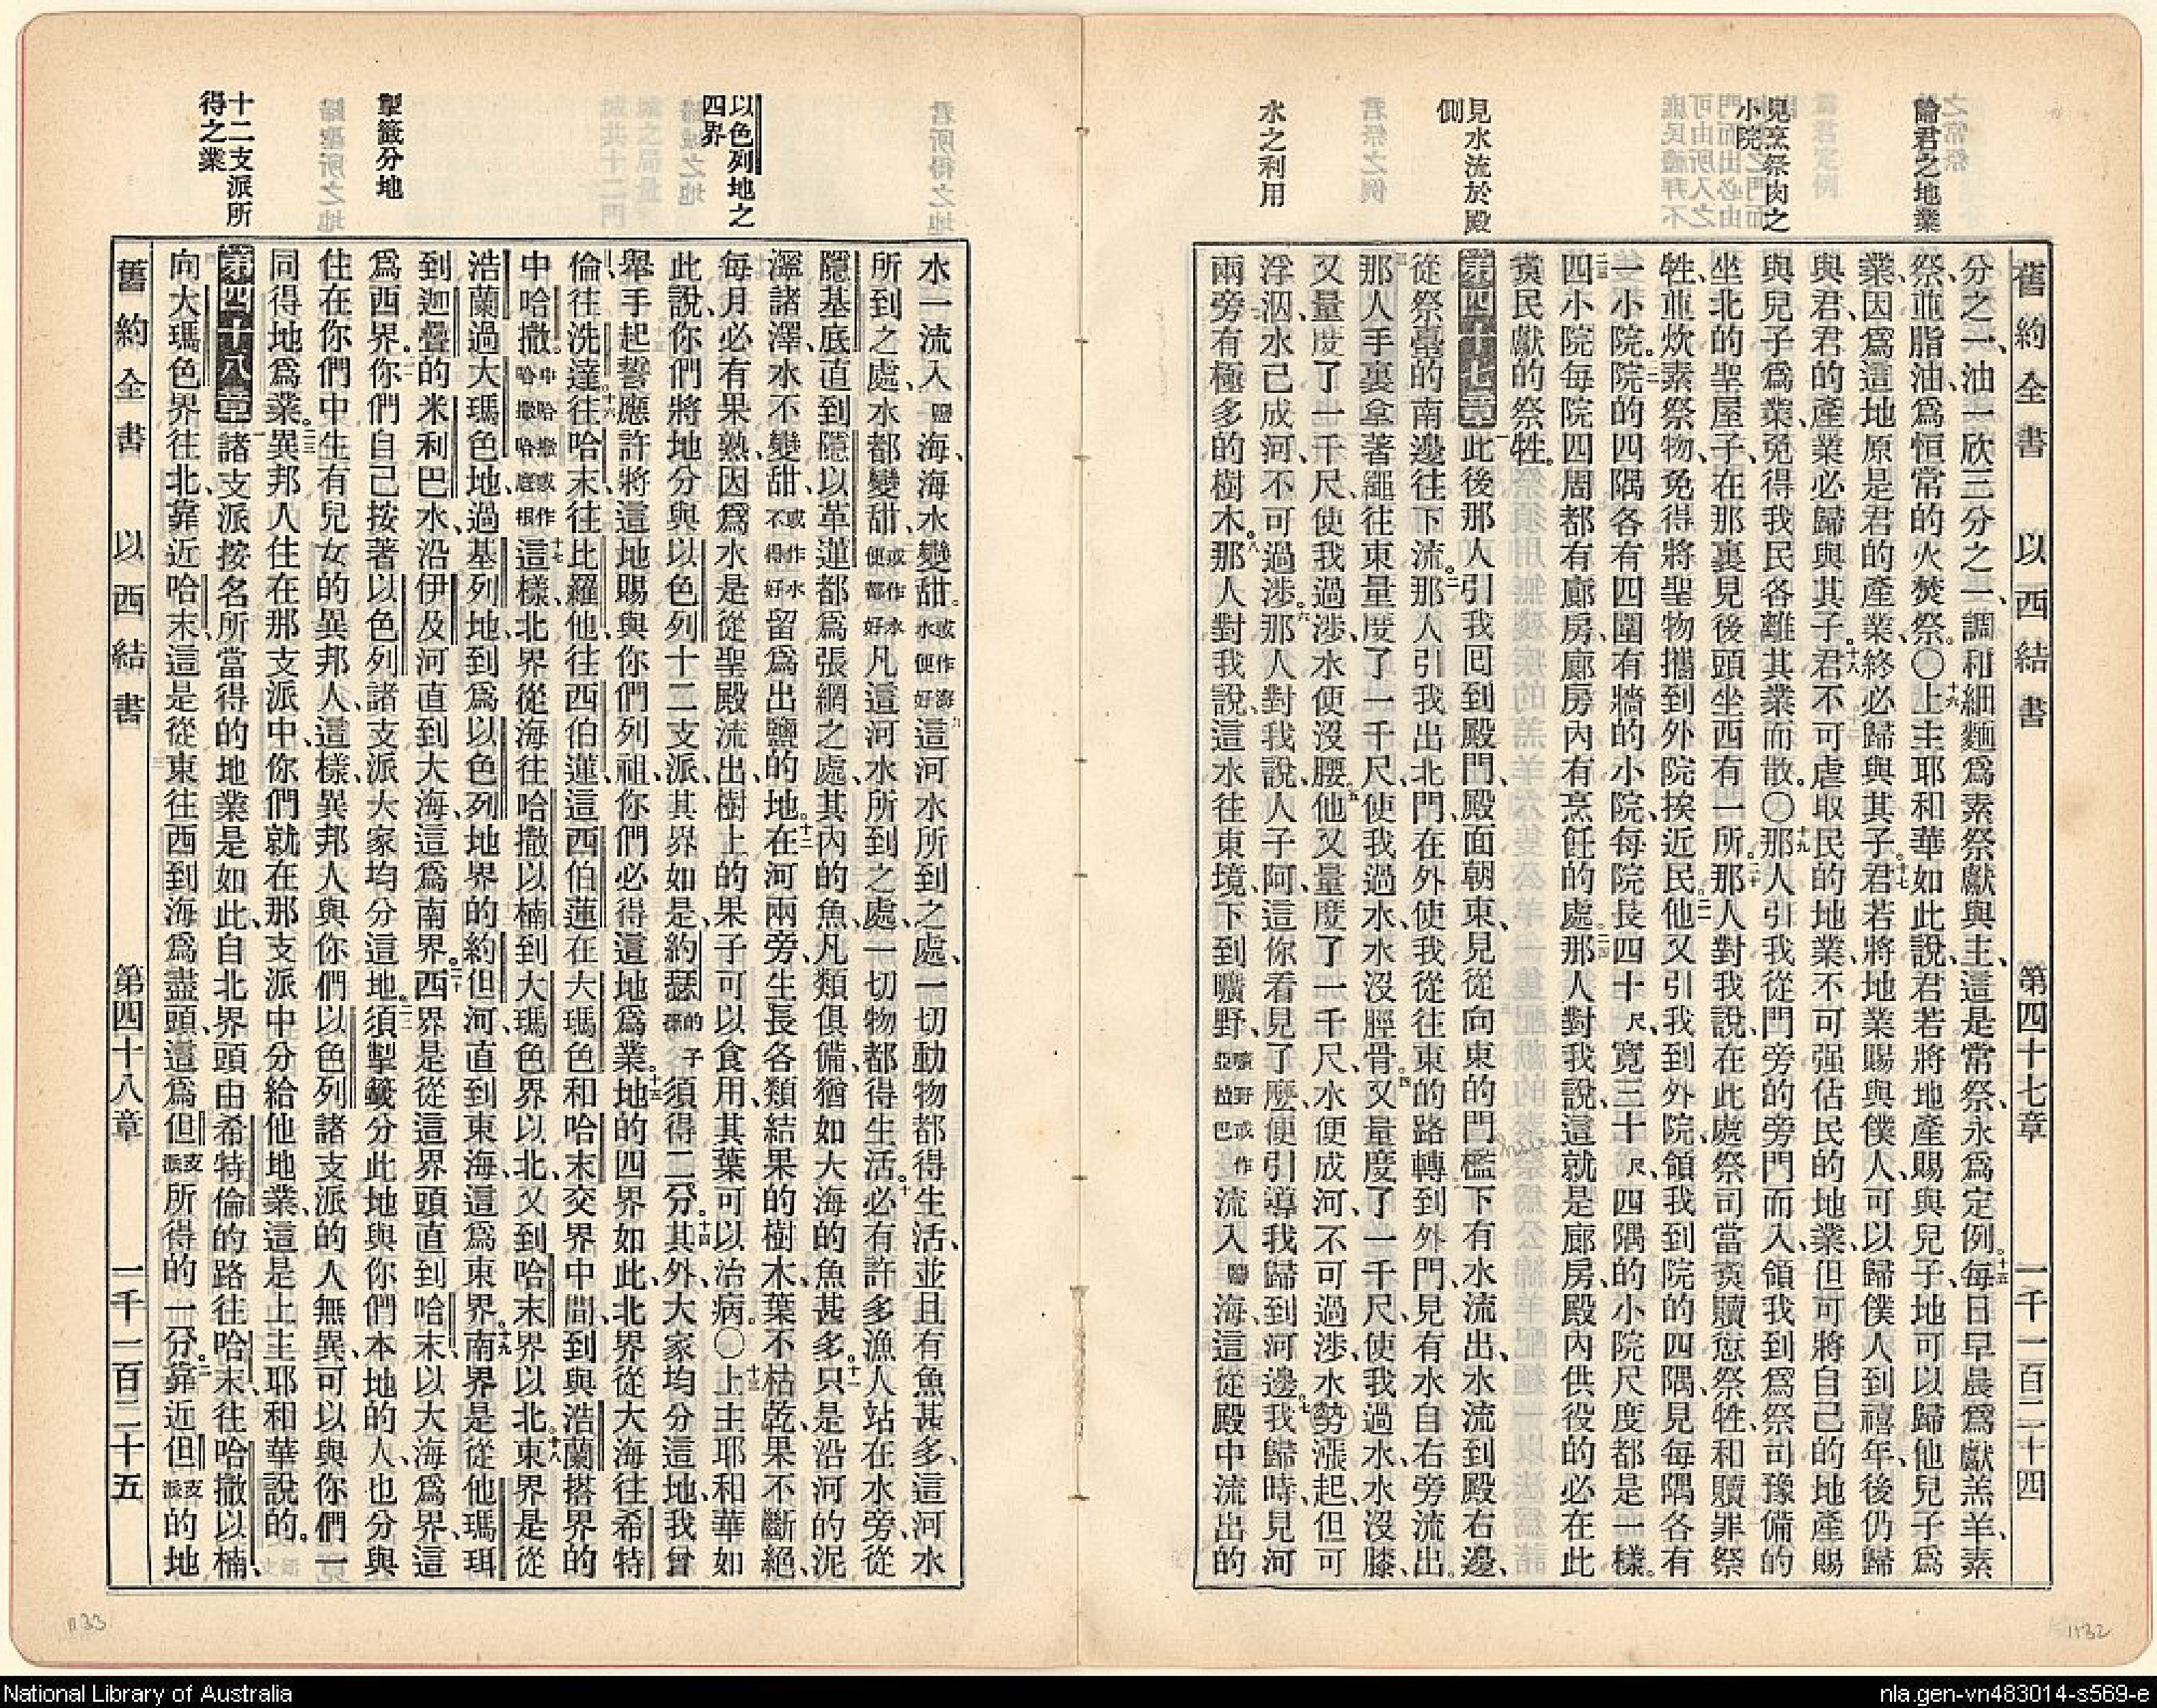 論君之地業
見烹祭肉之
小院
見水流於殿
側
水之利用
舊約全書 以西結書 第四十七章 一千一百二十四
分之一、油一欣三分之一、調和細麵爲素祭獻與主、這是常祭、永爲定例。十五每日早晨爲獻羔羊、素
祭、並脂油、爲恒常的火焚祭。〇十六上主耶和華如此說、君若將地產賜與兒子、地可以歸他兒子爲
業、因爲這地原是君的產業、終必歸與其子。十七君若將地業賜與僕人、可以歸僕人到禧年、後仍歸
與君、君的產業必歸與其子。十八君不可虐取民的地業、不可强佔民的地業、但可將自己的地產賜
與兒子爲業、免得我民各離其業而散。〇十九那人引我從門旁的旁門而入、領我到爲祭司豫備的
坐北的聖屋子、在那裏見後頭坐西有一所。二十那人對我說、在此處祭司當煑贖愆祭牲、和贖罪祭
牲、並炊素祭物、免得將聖物攜到外院挨近民。二一他又引我到外院、領我到院的四隅、見每隅各有
一小院。二二院的四隅各有四圍有牆的小院、每院長四十尺、寬三十尺、四隅的小院尺度都是一樣。
二三四小院每院四周都有廊房、廊房內有烹飪的處。二四那人對我說、這就是廊房、殿內供役的必在此
煑民獻的祭牲。
第四十七章 一此後那人引我回到殿門、殿面朝東、見從向東的門檻下有水流出、水流到殿右邊、
從祭臺的南邊往下流。二那人引我出北門、在外使我從往東的路轉到外門、見有水自右旁流出。
三那人手裏拿著繩往東量度了一千尺、使我過水、水沒脛骨。四又量度了一千尺、使我過水、水沒膝、
又量度了一千尺、使我過涉、水便沒腰。五他又量度了一千尺、水便成河、不可過涉、水勢漲起、但可
浮泅、水已成河、不可過涉。六那人對我說、人子阿、這你看見了麼、便引導我歸到河邊。七我歸時、見河
兩旁有極多的樹木。八那人對我說、這水往東境、下到曠野、曠野或作亞拉巴流入鹽海、這從殿中流出的
以色列地之
四界
掣籤分地
十二支派所
得之業
水一流入鹽海、海水變甜。或作海水便好九這河水所到之處、一切動物都得生活、並且有魚甚多、這河水
所到之處、水都變甜、或作水便都好凡這河水所到之處、一切物都得生活。十必有許多漁人站在水旁、從
隱基底直到隱以革蓮、都爲張網之處、其內的魚、凡類俱備、猶如大海的魚甚多。十一只是沿河的泥
濘諸澤、水不變甜、或作水不得好留爲出鹽的地。十二在河兩旁、生長各類結果的樹木、葉不枯乾、果不斷絕、
每月必有果熟、因爲水是從聖殿流出、樹上的果子可以食用、其葉可以治病。〇十三上主耶和華如
此說、你們將地分與以色列十二支派、其界如是、約瑟的子孫須得二分。十四其外大家均分這地、我曾
舉手起誓、應許將這地賜與你們列祖、你們必得這地爲業。十五地的四界如此、北界從大海往希特
倫、往洗達。十六往哈末、往比羅他、往西伯蓮、這西伯蓮在大瑪色和哈末交界中間、到與浩蘭搭界的
中哈撒。中哈撒或作哈撒哈底根十七這樣、北界從海往哈撒以楠、到大瑪色界以北、又到哈末界以北。十八東界是從
浩蘭、過大瑪色地、過基列地、到爲以色列地界的約但河、直到東海、這爲東界。十九南界是從他瑪珥
到迦疊的米利巴水、沿伊及河直到大海、這爲南界。二十西界是從這界頭直到哈末、以大海爲界、這
爲西界。二一你們自己按著以色列諸支派、大家均分這地。二二須掣籤分此地、與你們本地的人、也分與
住在你們中生有兒女的異邦人、這樣、異邦人與你們以色列諸支派的人無異、可以與你們一
同得地爲業。二三異邦人住在那支派中、你們就在那支派中分給他地業、這是上主耶和華說的。
第四十八章 一諸支派按名所當得的地業是如此、自北界頭、由希特倫的路往哈末、往哈撒以楠、
向大瑪色界往北、靠近哈末、這是從東往西到海爲盡頭、這爲但支派所得的一分。二靠近但支派的地
舊約全書 以西結書 第四十八章 一千一百二十五
1133
1132
National Library of Australia
nla.gen-vn483014-s569-e